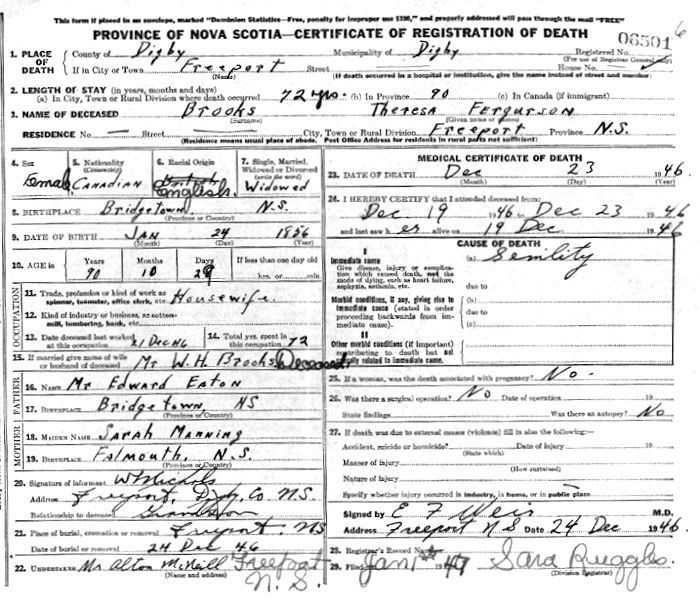 This form if placed in an envelope, marked "Dominion Statistics—Free, penalty for improper use $300," and properly addressed will pass through the mail "FREE"
PROVINCE OF NOVA SCOTIA—CERTIFICATE OF REGISTRATION OF DEATH
06501 6
1. PLACE OF DEATH County of Digby Municipality of Digby Registered No.
(For use of Registrar General only)
If in City or Town Freeport Street House No.
(Name) (If death occurred in a hospital or institution, give the name instead of street and number)
2. LENGTH OF STAY (in years, months and days)
(a) In City, Town or Rural Division where death occurred 72 yrs. (b) In Province 90 (c) In Canada (if immigrant)
3. NAME OF DECEASED Brooks Theresa Fergurson
(Surname) (Given name or names)
RESIDENCE No. — Street City, Town or Rural Division Freeport Province N.S.
(Residence means usual place of abode. Post Office Address for residents in rural parts not sufficient)
4. Sex Female
5. Nationality (Citizenship) Canadian
6. Racial Origin British English.
7. Single, Married, Widowed or Divorced (write the word) Widowed
8. BIRTHPLACE Bridgetown, N.S.
(Province or Country)
9. DATE OF BIRTH Jan 24 1856
(Month) (Day) (Year)
10. AGE in Years Months Days If less than one day old
90 10 29 hrs. or min.
OCCUPATION
11. Trade, profession or kind of work as spinner, teamster, office clerk, etc. Housewife
12. Kind of industry or business, as cotton-mill, lumbering, bank, etc.
13. Date deceased last worked at this occupation 21 Dec 46
14. Total yrs. spent in this occupation 72
15. If married give name of wife or husband of deceased Mr W. H. Brooks Deceased
FATHER
16. NAME Mr Edward Eaton
17. BIRTHPLACE Bridgetown NS
(Province or Country)
MOTHER
18. MAIDEN NAME Sarah Manning
19. BIRTHPLACE Falmouth, N.S.
(Province or Country)
20. Signature of informant W Nichols
Address Freeport, Digby Co. N.S.
Relationship to deceased Grandson
21. Place of burial, cremation or removal Freeport. NS
Date of burial or removal 24 Dec 46
22. UNDERTAKER Mr Alton McNeill Freeport N.S.
(Name and address)
MEDICAL CERTIFICATE OF DEATH
23. DATE OF DEATH Dec 23 1946
(Month) (Day) (Year)
24. I HEREBY CERTIFY that I attended deceased from:
Dec 19 1946 to Dec 23 1946
and last saw her alive on 19 Dec 1946
CAUSE OF DEATH
I
Immediate cause
Give disease, injury or complication which caused death, not the mode of dying, such as heart failure, asphyxia, asthenia, etc.
(a) Senility
due to
Morbid conditions, if any, giving rise to immediate cause (stated in order proceeding backwards from immediate cause).
(b)
due to
(c)
II
Other morbid conditions (if important) contributing to death but not causally related to immediate cause.
25. If a woman, was the death associated with pregnancy? No.
26. Was there a surgical operation? No Date of operation 19
State findings Was there an autopsy? No
27. If death was due to external causes (violence) fill in also the following:—
Accident, suicide or homicide? Date of injury 19
(State which)
Manner of injury
(How sustained)
Nature of injury
Specify whether injury occurred in industry, in home, or in public place.
Signed by E F Weir M.D.
Address Freeport N S Date 24 Dec 1946
28. Registrar's Record Number
29. Filed Jan 1947 Sara Ruggles.
(Division Registrar)